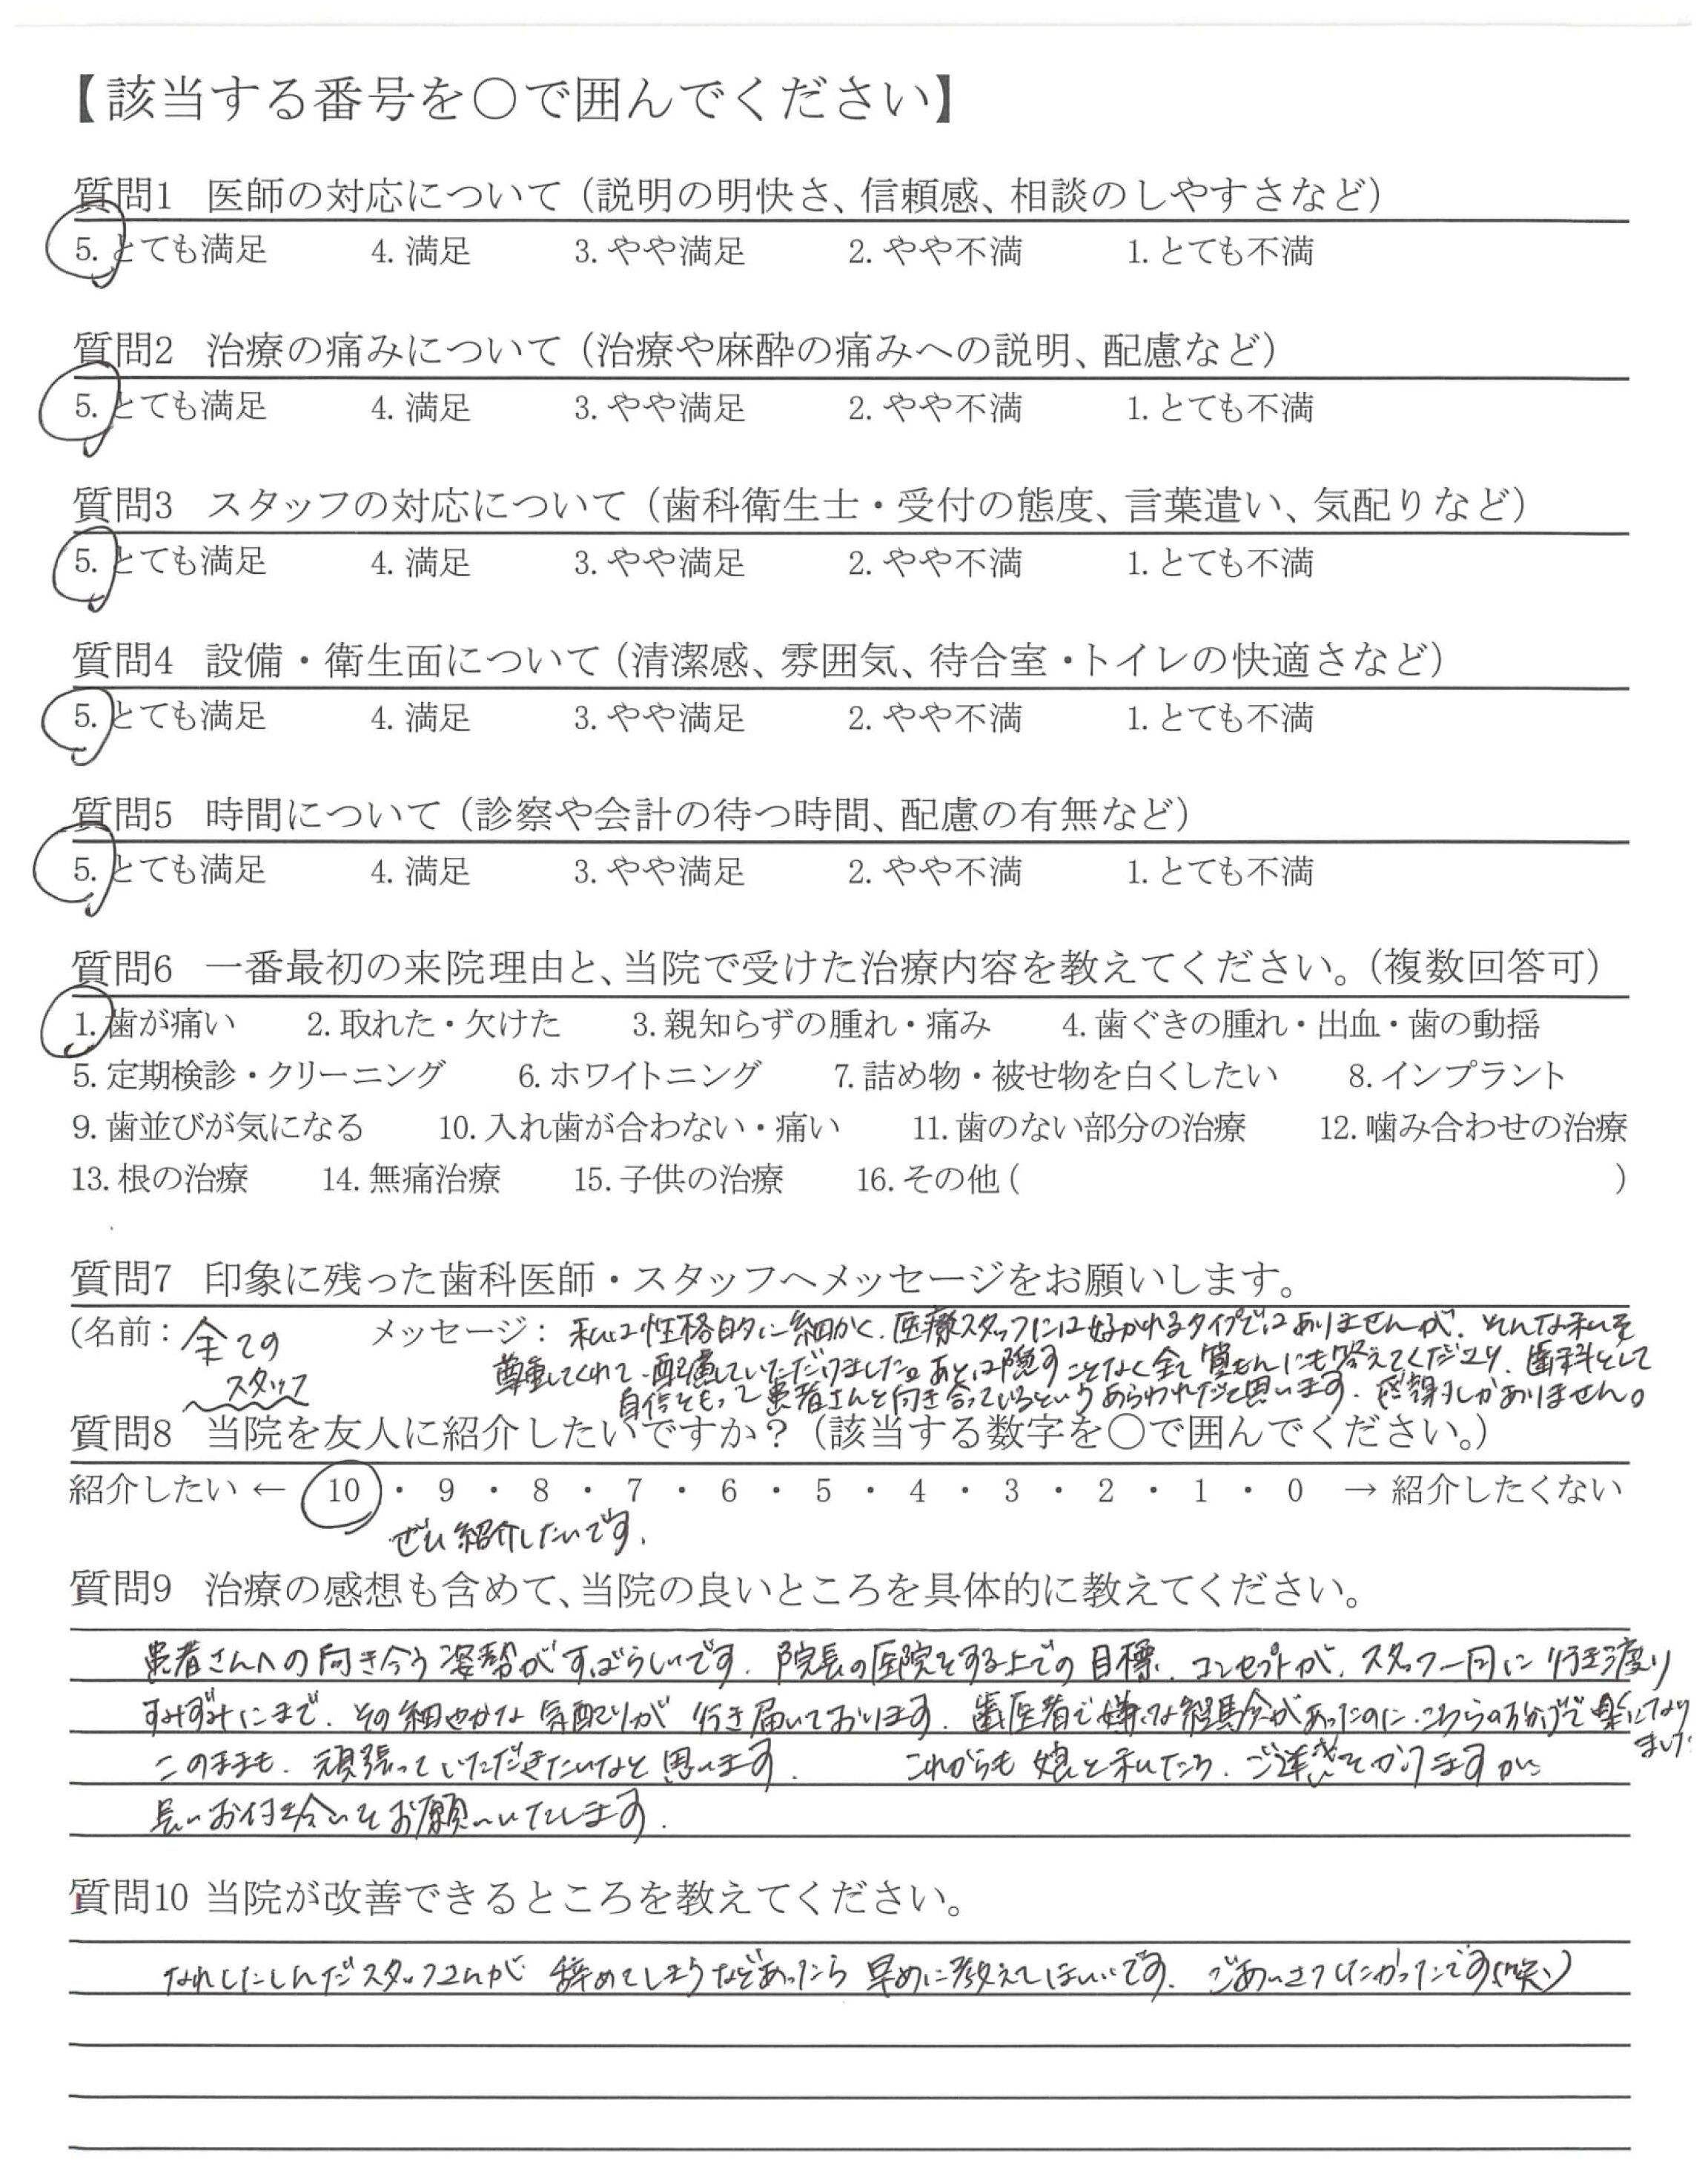 【該当する番号を〇で囲んでください】
質問1 医師の対応について（説明の明快さ、信頼感、相談のしやすさなど）
5. とても満足 4. 満足 3. やや満足 2. やや不満 1. とても不満
質問2 治療の痛みについて（治療や麻酔の痛みへの説明、配慮など）
5. とても満足 4. 満足 3. やや満足 2. やや不満 1. とても不満
質問3 スタッフの対応について（歯科衛生士・受付の態度、言葉遣い、気配りなど）
5. とても満足 4. 満足 3. やや満足 2. やや不満 1. とても不満
質問4 設備・衛生面について（清潔感、雰囲気、待合室・トイレの快適さなど）
5. とても満足 4. 満足 3. やや満足 2. やや不満 1. とても不満
質問5 時間について（診察や会計の待つ時間、配慮の有無など）
5. とても満足 4. 満足 3. やや満足 2. やや不満 1. とても不満
質問6 一番最初の来院理由と、当院で受けた治療内容を教えてください。（複数回答可）
1. 歯が痛い 2. 取れた・欠けた 3. 親知らずの腫れ・痛み 4. 歯ぐきの腫れ・出血・歯の動揺
5. 定期検診・クリーニング 6. ホワイトニング 7. 詰め物・被せ物を白くしたい 8. インプラント
9. 歯並びが気になる 10. 入れ歯が合わない・痛い 11. 歯のない部分の治療 12. 噛み合わせの治療
13. 根の治療 14. 無痛治療 15. 子供の治療 16. その他（ ）
質問7 印象に残った歯科医師・スタッフへメッセージをお願いします。
（名前：全ての メッセージ：私は性格的に細かく、医療スタッフには好かれるタイプではありませんが、そんな私を
スタッフ 尊重してくれて、配慮していただけました。あとは隠すことなく全て質もんにも答えてくださり、歯科として
自信をもって患者さんと向き合っているというあらわれだと思います。感謝しかありません。
質問8 当院を友人に紹介したいですか？（該当する数字を〇で囲んでください。）
紹介したい ← 10 ・ 9 ・ 8 ・ 7 ・ 6 ・ 5 ・ 4 ・ 3 ・ 2 ・ 1 ・ 0 → 紹介したくない
ぜひ紹介したいです。
質問9 治療の感想も含めて、当院の良いところを具体的に教えてください。
患者さんへの向き合う姿勢がすばらしいです。院長の医院をする上での目標、コンセプトが、スタッフ一同に行き渡り
すみずみにまで、その細やかな気配りが行き届いております。歯医者で嫌な経験があったのに、こちらのおかげで楽になり
ました
このままも、頑張っていただきたいなと思います。 これからも娘と私たち、ご迷惑をかけますが
長いお付き合いをお願いいたします。
質問10 当院が改善できるところを教えてください。
なれしたしんだスタッフさんが辞めてしまうなどあったら早めに教えてほしいです。ごあいさつしたかったです(笑)